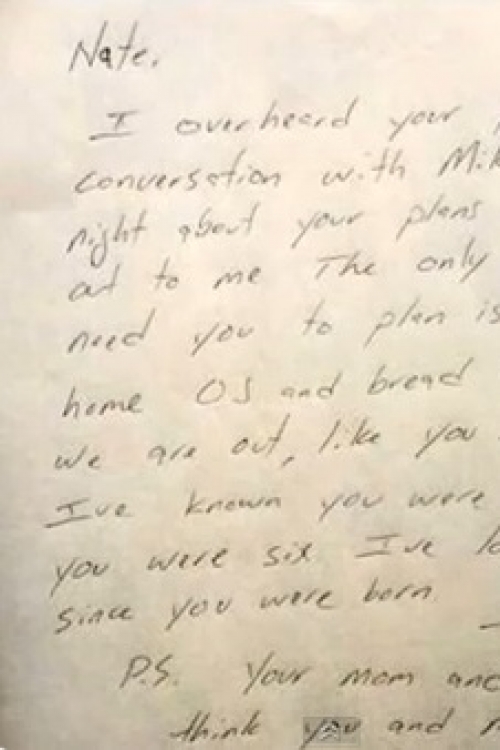 Nate.
I overheard your
conversation with
night about your plans
out to me The only
need you to plan is
home OJ and bread
we are out, like you
I've known you were
you were six I've
since you were born
P.S. Your mom and
think you and